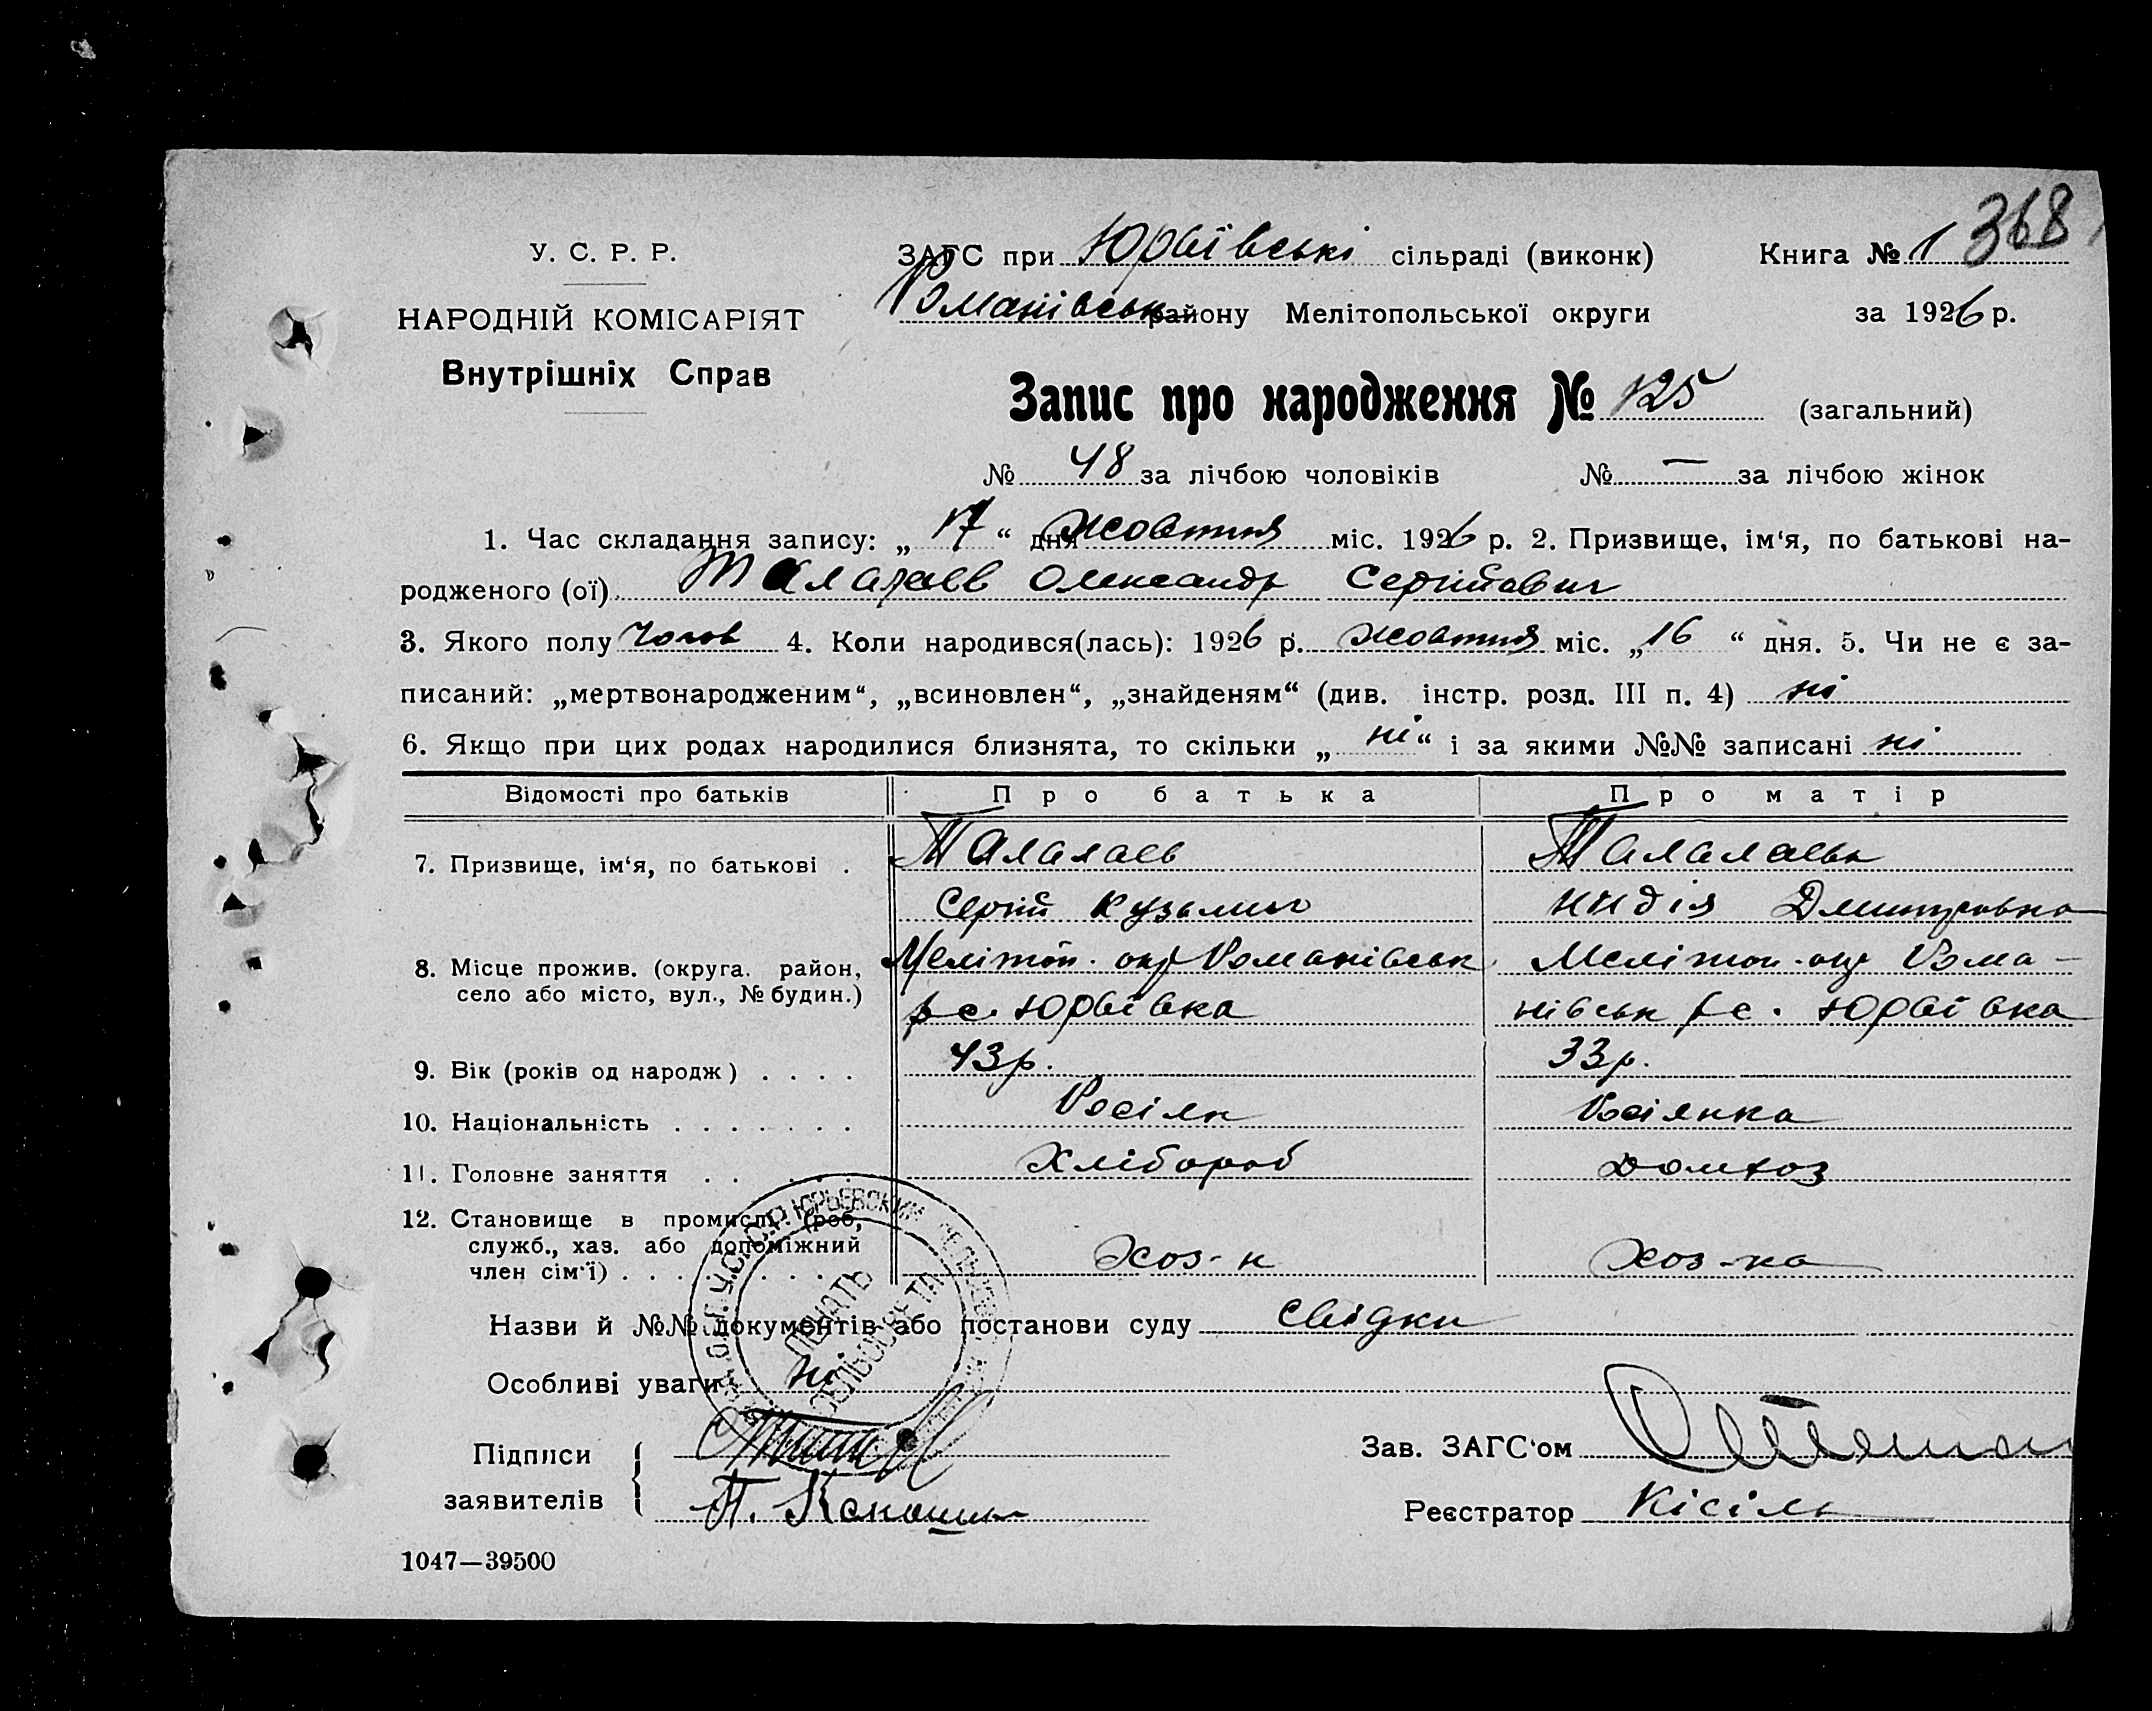 368
У. С. Р. Р.
НАРОДНІЙ КОМІСАРІЯТ
Внутрішніх Справ
ЗАГС при Юрвївські сільраді (виконк) Книга № 1
Романівськ району Мелітопольської округи за 1926 р.
Запис про народження № 125 (загальний)
№ 48 за лічбою чоловіків № — за лічбою жінок
1. Час складання запису: „17“ дня жовтня міс. 1926 р. 2. Призвище, ім‘я, по батькові на-
родженого (ої) Талалаєв Олександр Сергійович
3. Якого полу Чолов 4. Коли народився(лась): 1926 р. жовтня міс. „16“ дня. 5. Чи не є за-
писаний: „мертвонародженим“, „всиновлен“, „знайденям“ (див. інстр. розд. III п. 4) ні
6. Якщо при цих родах народилися близнята, то скільки „ні“ і за якими №№ записані ні
Відомості про батьків Про батька Про матір
7. Призвище, ім‘я, по батькові . Талалаєв Талалаєва
Сергій Кузьмич Дмитровна
8. Місце прожив. (округа. район, Мелітоп. окр Романівськ Мелітоп. окр Рома-
село або місто, вул., № будин.) р с. Юрвївка нівськ р с. Юрвївка
9. Вік (років од народж) . . . . 43р. 33р.
10. Національність . . . . . . . Росіян Росіянка
11. Головне заняття . . Хлібороб Домхоз
12. Становище в промислі (роб,
служб., хаз. або допоміжний
член сім‘ї) . . . . Хоз-н Хоз-ка
Назви й №№ документів або постанови суду свідки
Особливі уваги ні
У.С.С.Р. ЮРЬЕВСКИЙ
ПЕЧАТЬ
СЕЛЬСОВЕТА
Підписи
заявителів П.
Зав. ЗАГС‘ом
Реєстратор Кісіль
1047—39500